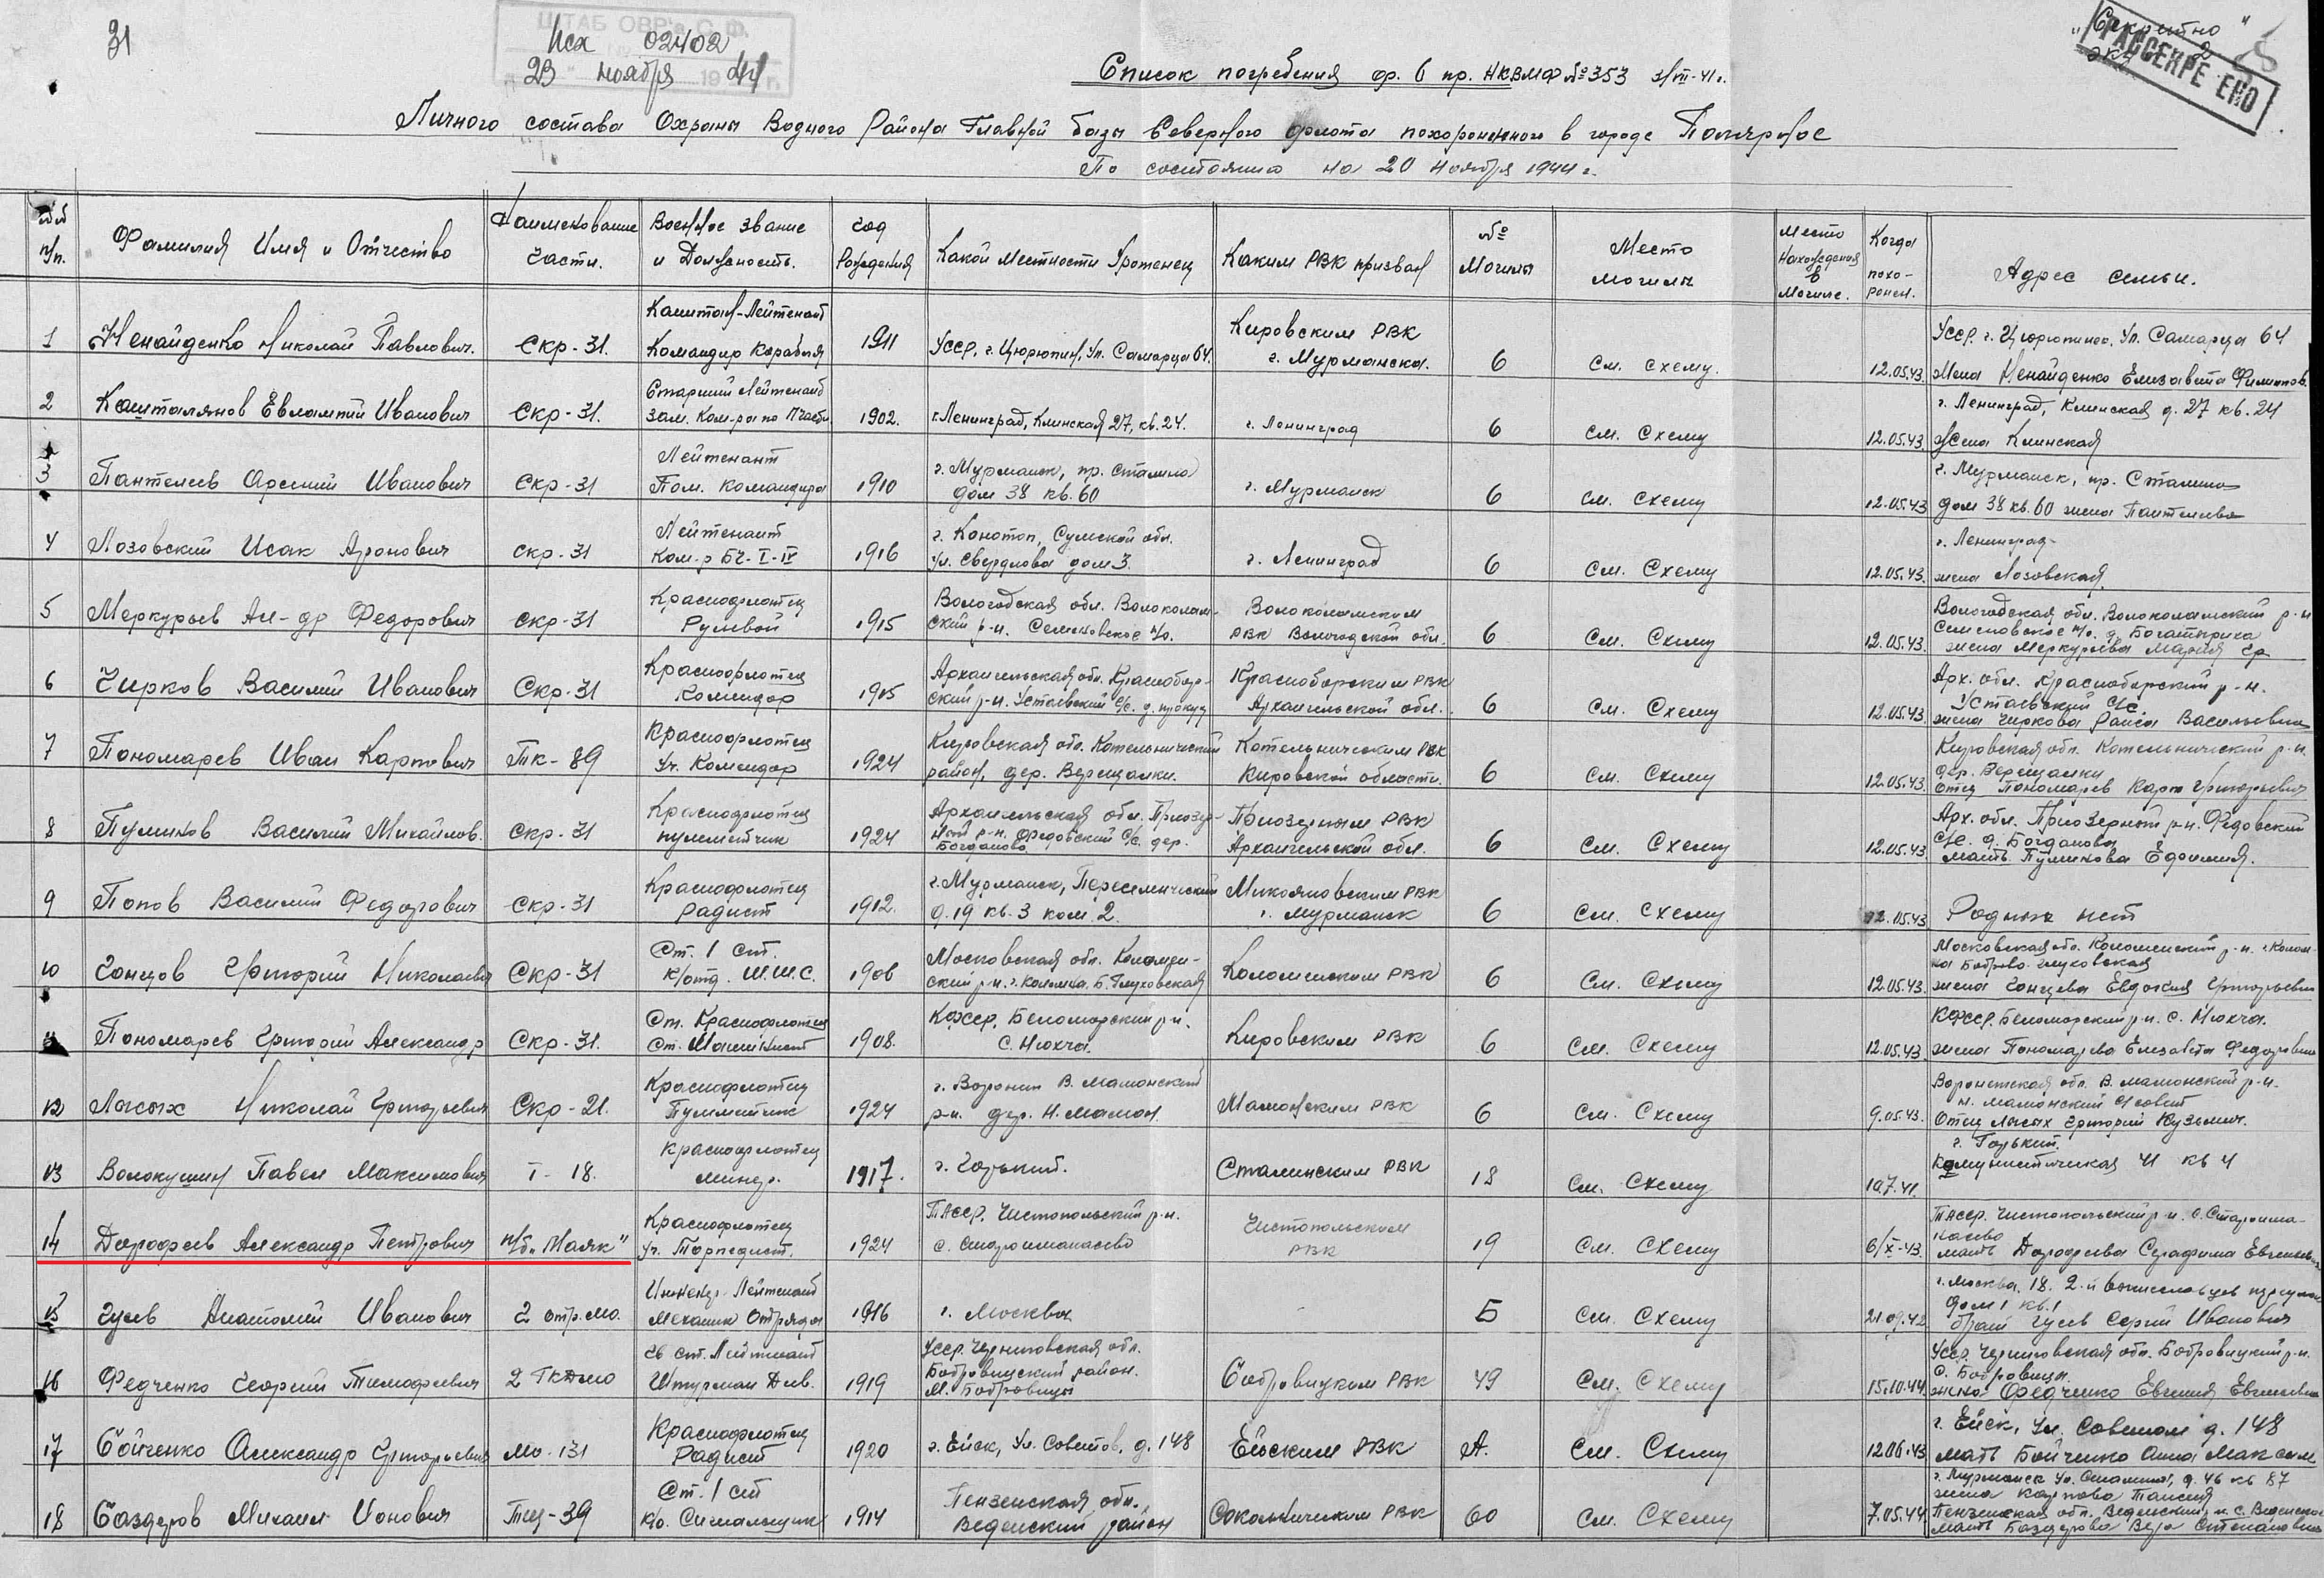 31
ШТАБ ОВР'а С.Ф.
Исх 02402
"23" ноября 1944 г.
"Секретно"
экз
РАССЕКРЕЧЕНО
Список погребения ф. 6 пр. НКВМФ №353 31/VII-41г.
Личного состава Охраны Водного Района Главной базы Северного флота похороненного в городе Полярное
По состоянию на 20 ноября 1944 г.
№№ п/п. Фамилия Имя и Отчество Наименование части. Военное звание и Должность. год Рождения Какой Местности Уроженец Каким РВК призван № Могилы Место могилы Место Нахождения в Могиле. Когда похоронен. Адрес семьи.
1 Ненайденко Николай Павлович. Скр-31. Капитан-Лейтенант Командир Корабля 1911 УССР, г. Цюрюпин, Ул. Самарца 64. Кировским РВК г. Мурманска. 6 См. Схему. 12.05.43 УССР, г. Цюрюпинск, Ул. Самарца 64 Жена Ненайденко Елизавета
2 Капталянов Евлампий Иванович Скр-31. Старший Лейтенант Зам. Ком-ра по П части 1902. г. Ленинград, Клинская 27, кв. 24. г. Ленинград 6 См. Схему 12.05.43 г. Ленинград, Клинская д. 27 кв. 24 Жена Клинская
3 Пантелеев Арсений Иванович Скр-31 Лейтенант Пом. Командира 1910 г. Мурманск, пр. Сталина дом 38 кв. 60 г. Мурманск 6 См. Схему 12.05.43 г. Мурманск, пр. Сталина дом 38 кв. 60 жена Пантелеева
4 Лозовский Исак Аронович Скр-31 Лейтенант Ком-р БЧ-I-IV 1916 г. Конотоп, Сумской обл. Ул. Свердлова дом 3. г. Ленинград 6 См. Схему 12.05.43. г. Ленинград жена Лозовская.
5 Меркурьев Ал-др Федорович Скр-31 Краснофлотец Рулевой 1915 Вологодская обл. Волоколамский р-н. Семеновское п/о. Волоколамским РВК Вологодской обл. 6 См. Схему 12.05.43. Вологодская обл. Волоколамский р-н Семеновское п/о. д. Богатыриха жена Меркурьева Мария
6 Чирков Василий Иванович Скр-31 Краснофлотец Комендор 1915 Архангельская обл. Красноборский р-н. Устаевский С/С. д. Красноборским РВК Архангельской обл. 6 См. Схему 12.05.43 Арх. обл. Красноборский р-н. Устаевский С/С жена Чиркова Раиса Васильевна
7 Пономарев Иван Карпович ТК-89 Краснофлотец Уч. Комендор 1924 Кировская обл. Котельнический район, дер. Верещалки. Котельническим РВК Кировской области. 6 См. Схему 12.05.43. Кировская обл. Котельнический р-н. дер. Верещалки Отец Пономарев Карп Григорьевич
8 Пуминов Василий Михайлов. Скр-31 Краснофлотец пулеметчик 1924 Архангельская обл. Приозерный р-н. Федовский С/С. дер. Богданово Приозерным РВК Архангельской обл. 6 См. Схему 12.05.43 Арх. обл. Приозерный р-н. Федовский С/С. д. Богданово мать Пуминова Ефимия.
9 Попов Василий Федорович Скр-31 Краснофлотец радист 1912. г. Мурманск, Переселенческий д. 19 кв. 3 ком. 2. Микояновским РВК г. Мурманск 6 См. Схему 12.05.43 Родных нет
10 Гонцов Григорий Николаевич Скр-31 Ст. 1 ст. К/отд. Ш.Ш.С. 1906 Московская обл. Коломенский р-н. г. Коломна. Б. Глуховская Коломенским РВК 6 См. Схему 12.05.43. Московская обл. Коломенский р-н. г. Коломна Боброво Глуховская жена Гонцова Евдокия Григорьевна
11 Пономарев Григорий Александр Скр-31. Ст. Краснофлотец Ст. Машинист 1908. КФССР, Беломорский р-н. С. Нюхча. Кировским РВК 6 См. Схему 12.05.43. КФССР, Беломорский р-н. С. Нюхча. жена Пономарева Елизавета Федоровна
12 Лысых Николай Григорьевич Скр-21. Краснофлотец Пулеметчик 1924 г. Воронеж В. Мамонский р-н. дер. Н. Мамон. Мамонским РВК 6 См. Схему 9.05.43. Воронежская обл. В. Мамонский р-н. Н. Мамонский С/совет Отец Лысых Григорий Кузьмич.
13 Волокушин Павел Максимович Т-18. Краснофлотец минер. 1917. г. Горький. Сталинским РВК 18 См. Схему 10.7.41. г. Горький Комунистическая 41 кв 4
14 Дорофеев Александр Петрович п/б "Маяк" Краснофлотец Уч. Торпедист. 1924 ТАССР, Чистопольский р-н. с. Староиманасево Чистопольским РВК 19 См. Схему 6/X-43. ТАССР, Чистопольский р-н. С. мать Дорофеева Серафима Евгеньевна
15 Гусев Анатолий Иванович 2 отр. МО. Инженер-Лейтенант Механик Отряда 1916 г. Москва - Б См. Схему 21.09.42 г. Москва, 18. 2-й переулок дом 1 кв. 1 брат Гусев Сергей Иванович
16 Федченко Георгий Тимофеевич 2 ГКДМО Гв ст. Лейтенант Штурман Див. 1919 УССР, Черниговская обл. Бобровицкий район. М. Бобровицы Бобровицким РВК 49 См. Схему 15.10.44. УССР, Черниговская обл. Бобровицкий р-н. С. Бобровицы. жена Федченко Евгения Евгеньевна
17 Бойченко Александр Григорьевич МО-131 Краснофлотец Радист 1920 г. Ейск, Ул. Советов, д. 148 Ейским РВК А. См. Схему 12.06.43 г. Ейск, Ул. Советов д. 148 мать Бойченко Анна Максим
18 Баздеров Михаил Ионович Тщ-39 Ст. 1 ст К/о. Сигнальщик 1914 Пензенская обл. Веденский район Сокольническим РВК 60 См. Схему 7.05.44 г. Мурманск Ул. Сталина, д. 46 кв 87 жена Карпова Таисия Пензенская обл. Веденский р-н. С. Веденское мать Баздерова Вера Степановна